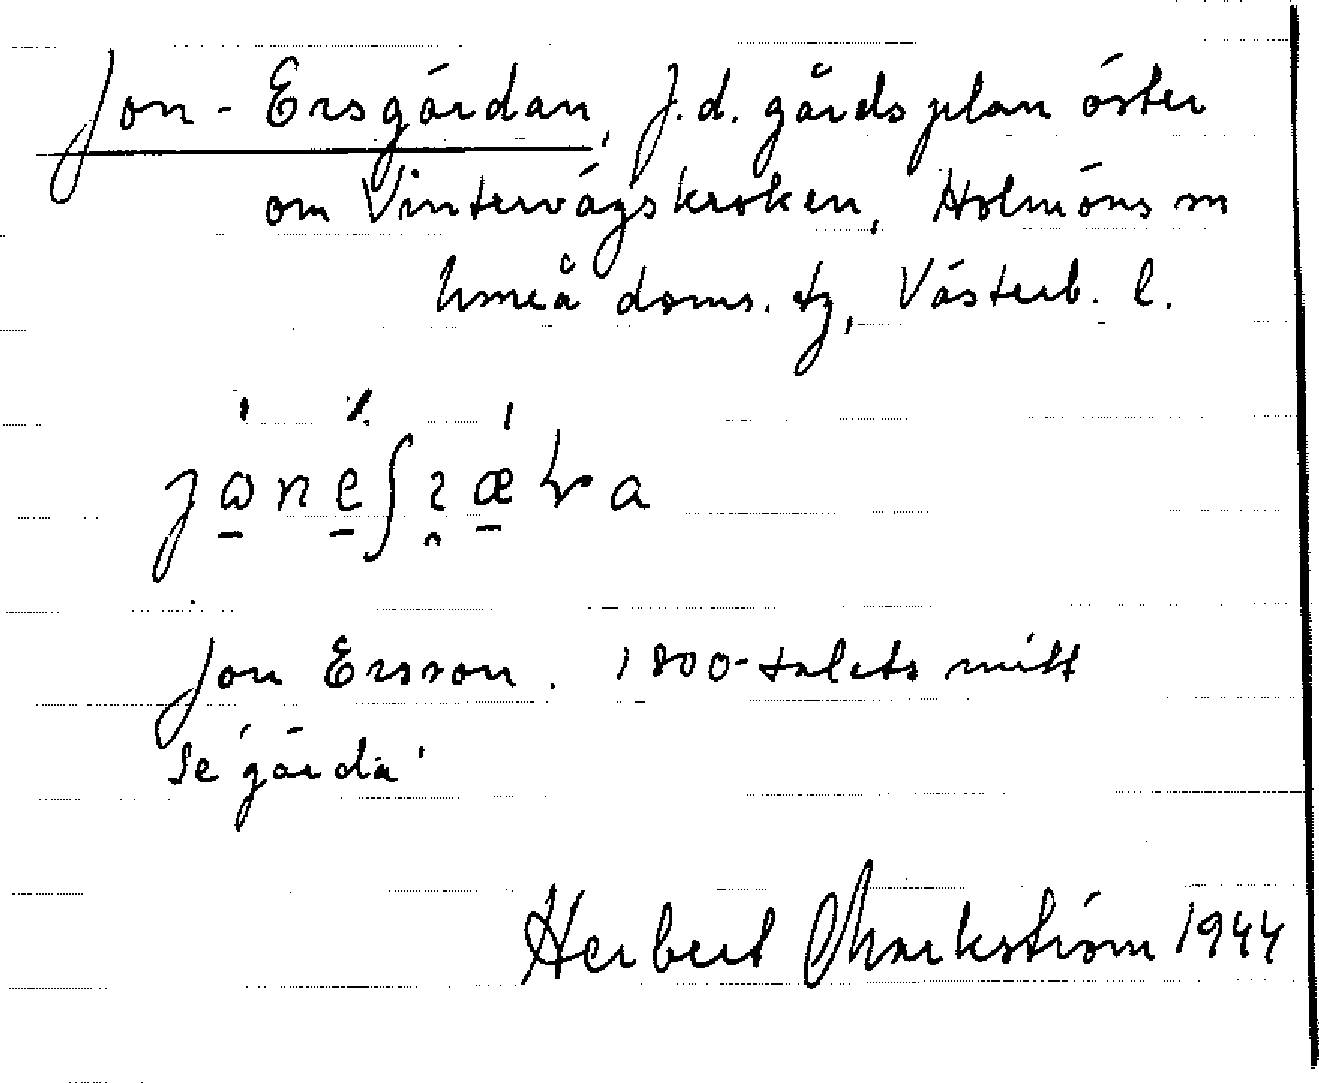 Jon-Ersgärdan, f.d. gårdsplan öster
om Vintervägskroken, Holmöns sn
Umeå doms. tg, Västerb. l.
Jon Ersson. 1800-talets mitt
Se 'gärda'
Herbert Markström 1944